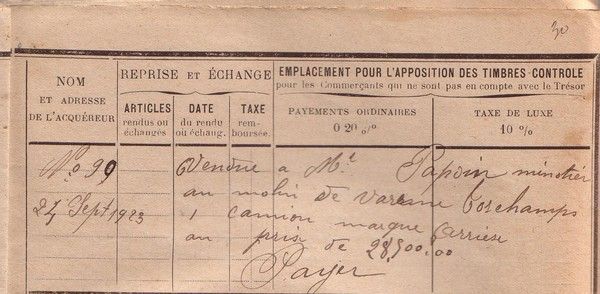 30
NOM
ET ADRESSE
DE L'ACQUÉREUR
REPRISE ET ÉCHANGE
ARTICLES
rendus ou
échangés
DATE
du rendu
ou échang.
TAXE
rem-
boursée.
EMPLACEMENT POUR L'APPOSITION DES TIMBRES-CONTROLE
pour les Commerçants qui ne sont pas en compte avec le Trésor
PAYEMENTS ORDINAIRES
0 20 %
TAXE DE LUXE
10 %
No 99 Vendue a Mr Papoin minotier
au molin de varenne
24 Sept 1923 1 camion marque
au prix de 28,500.00
Payer